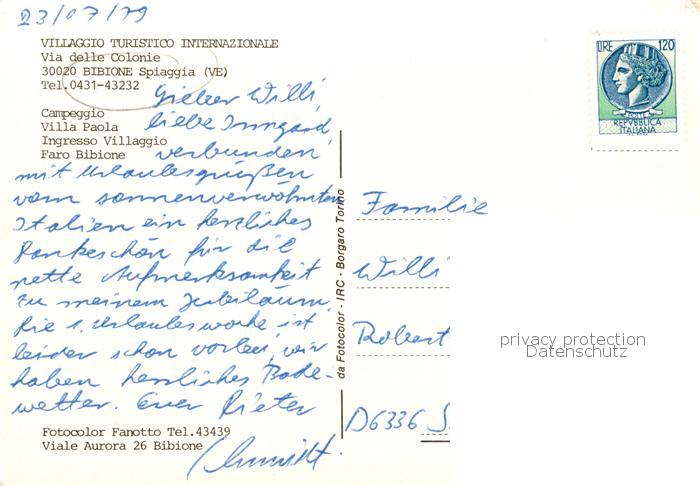 23/07/79
VILLAGGIO TURISTICO INTERNAZIONALE
Via delle Colonie
30020 BIBIONE Spiaggia (VE)
Tel.0431-43232
Campeggio
Villa Paola
Ingresso Villaggio
Faro Bibione
Lieber Willi,
liebe Irmgard,
verbunden
mit Urlaubsgrüßen
vom sonnenverwöhnten
Italien ein herzliches
Dankeschön für die
nette Aufmerksamkeit
zu meinem Jubiläum.
Die 1. Urlaubswoche ist
leider schon vorbei, wir
haben herrliches Bade-
wetter. Euer Dieter
Schmidt.
Fotocolor Fanotto Tel.43439
Viale Aurora 26 Bibione
da Fotocolor - IRC - Borgaro Torino
LIRE 120
REPVBBLICA
ITALIANA
Familie
Willi
Robert
D6336 S
privacy protection
Datenschutz